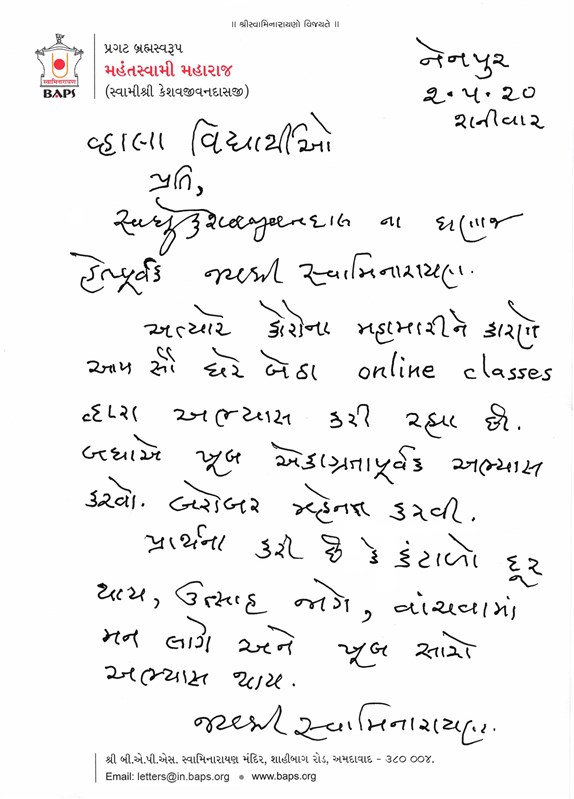 ॥ શ્રીસ્વામિનારાયણો વિજયતે ॥
પ્રગટ બ્રહ્મસ્વરૂપ
મહંતસ્વામી મહારાજ
(સ્વામીશ્રી કેશવજીવનદાસજી)
સ્વામિનારાયણ
BAPS
નેનપુર
૨.૫.૨૦
શનીવાર
વ્હાલા વિદ્યાર્થીઓ
પ્રતિ,
સાધુ કેશવજીવનદાસ ના ઘણાજ
હેતપૂર્વક જયશ્રી સ્વામિનારાયણ.
અત્યારે કોરોના મહામારીને કારણે
આપ સૌ ઘરે બેઠા online classes
દ્વારા અભ્યાસ કરી રહ્યા છો.
બધાએ ખૂબ એકાગ્રતાપૂર્વક અભ્યાસ
કરવો. બરોબર મહેનત કરવી.
પ્રાર્થના કરી છે કે કંટાળો દૂર
થાય, ઉત્સાહ જાગે, વાંચવામાં
મન લાગે અને ખૂબ સારો
અભ્યાસ થાય.
જયશ્રી સ્વામિનારાયણ.
શ્રી બી.એ.પી.એસ. સ્વામિનારાયણ મંદિર, શાહીબાગ રોડ, અમદાવાદ - ૩૮૦ ૦૦૪.
Email: letters@in.baps.org • www.baps.org